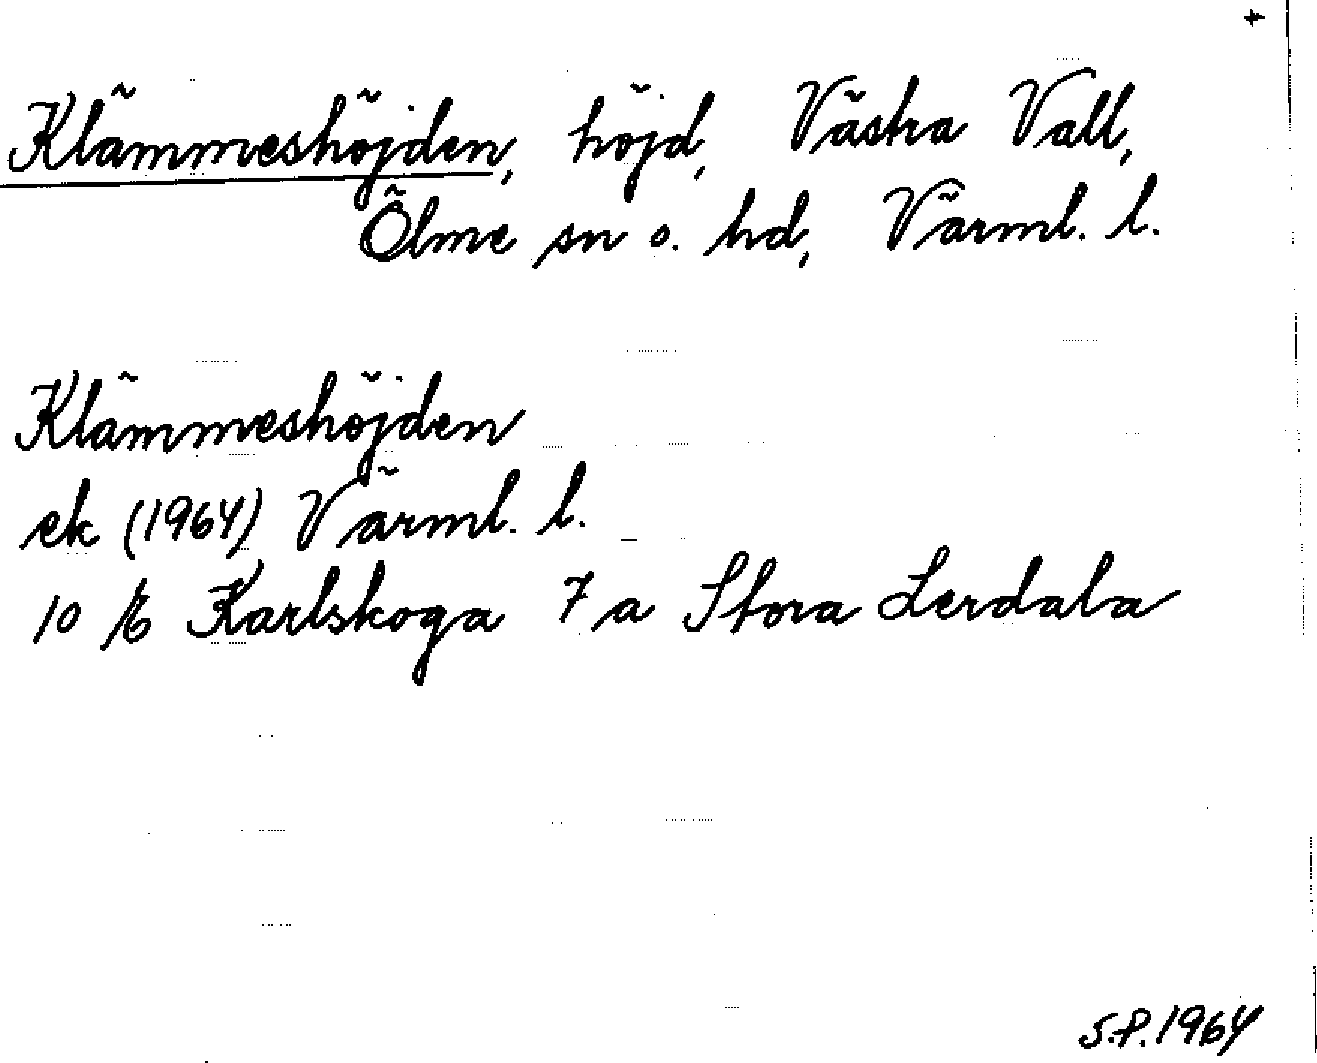 +
Klämmeshöjden, höjd, Västra Vall,
Ölme sn o. hd, Värml. l.
Klämmeshöjden
ek (1964) Värml. l.
10 /6 Karlskoga 7 a Stora Lerdala
S.P. 1964